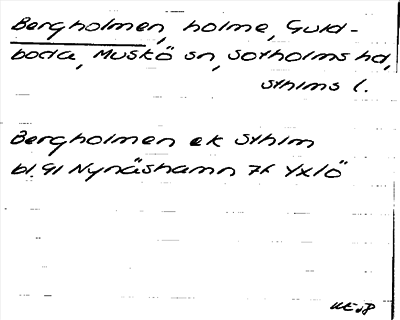 Bergholmen, holme, Guld-
boda, Muskö sn, Sotholms hd,
Sthlms l.
Bergholmen ek Sthlm
bl. 91 Nynäshamn 7f Yxlö